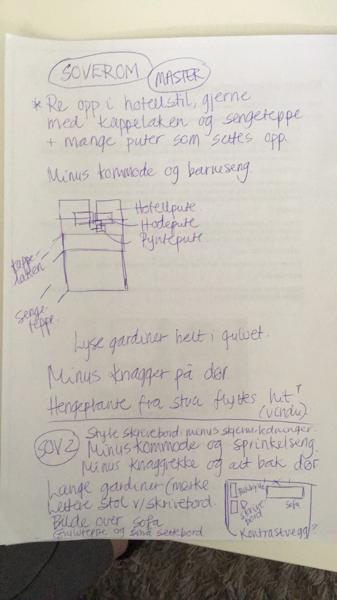 SOVEROM MASTER
* Re opp i hotellstil, gjerne
med kappelaken og sengeteppe
+ mange puter som settes opp.
Minus kommode og barneseng.
Hotellpute
Hodepute
Pyntepute
Kappe-
laken
Senge-
teppe.
Lyse gardiner helt i gulvet.
Minus knagger på dør.
Hengeplante fra stua flyttes hit?
(vindu)
SOV 2
Style skrivebord: minus skjerm+ledninger.
Minus kommode og sprinkelseng.
Minus knaggrekke og alt bak dør
Lange gardiner (mørke
Lettere stol v/skrivebord.
Bilde over sofa
Gulvteppe og små settebord.
Skrive-
bord
Sofa
Kontrastvegg?